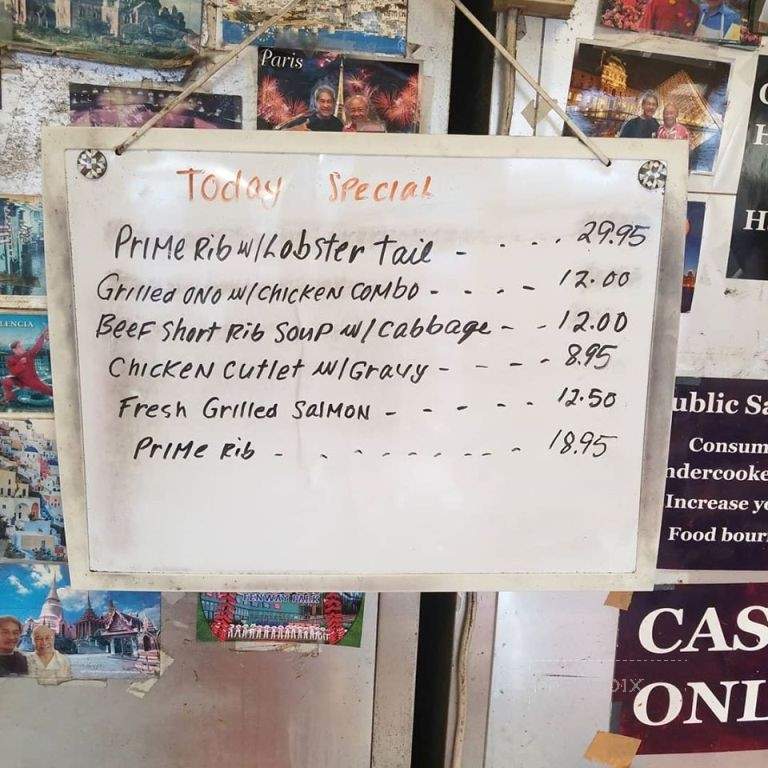 Paris
Today Special
Prime Rib w/Lobster Tail - . . . . 29.95
Grilled ONO w/chicken combo - - - - 12.00
Beef Short Rib Soup w/cabbage - - 12.00
Chicken Cutlet w/Gravy - - - - 8.95
Fresh Grilled Salmon - - - - - 12.50
Prime Rib - . . . . . . . - 18.95
LENCIA
H
ublic Sa
Consum
ndercooke
Increase yo
Food bour
FENWAY PARK
CAS
ONL